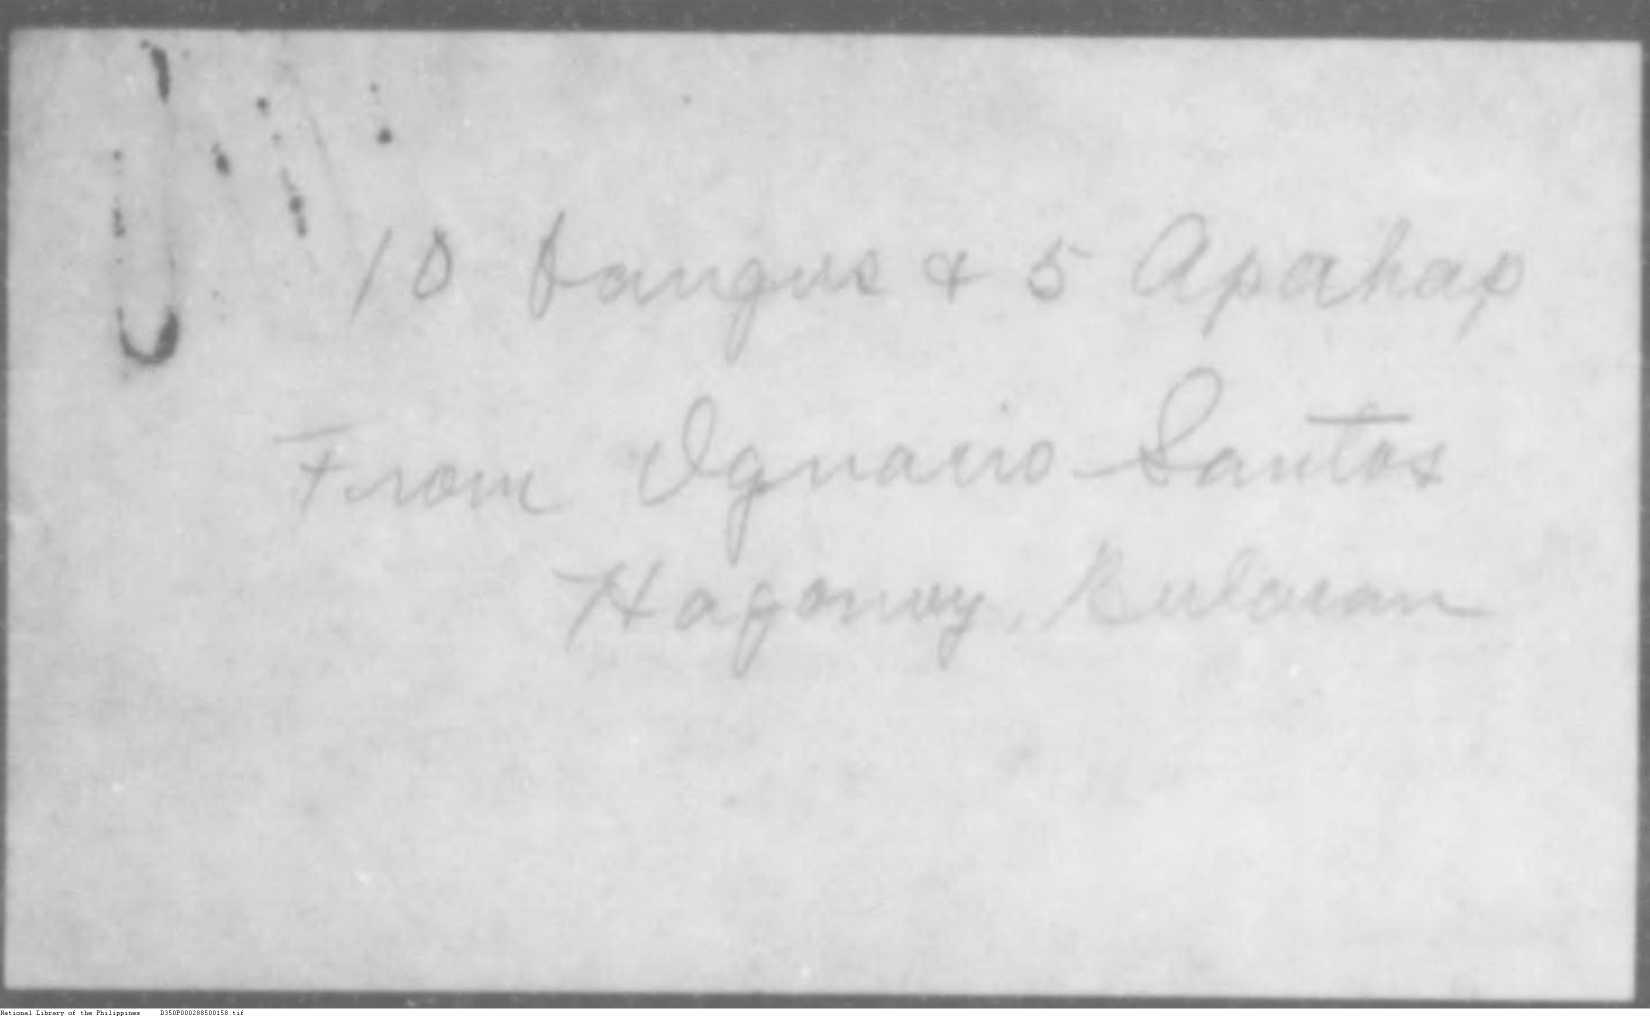 10 bangus & 5 Apahap
From Ignacio Santos
Hagonoy, Bulacan
National Library of the Philippines D350P000288500158.tif